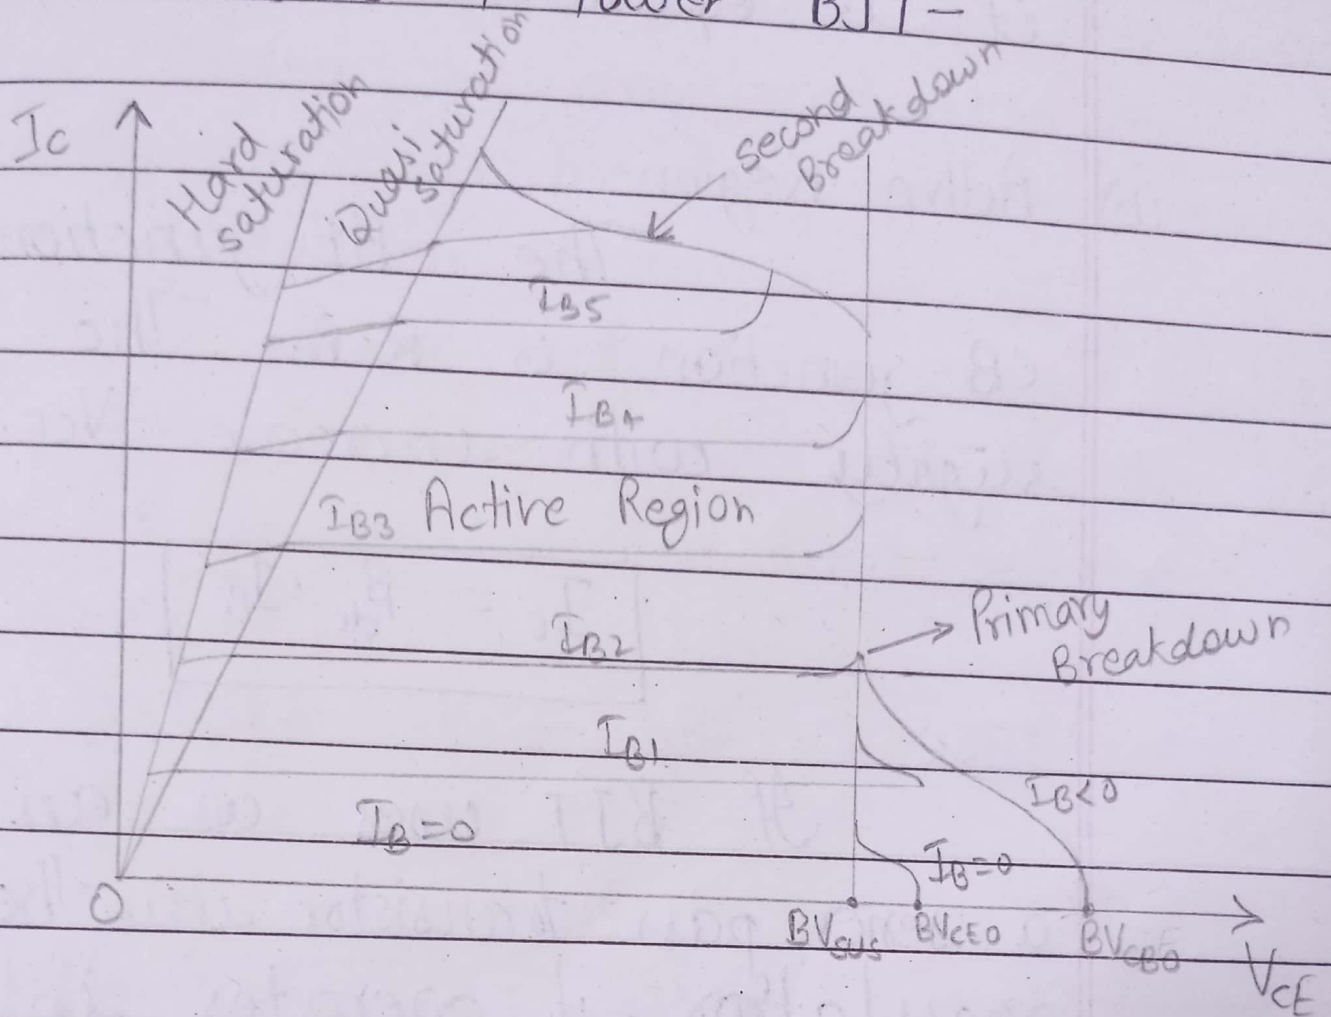 Power BJT -
Ic
Hard
saturation
Quasi
saturation
second
Breakdown
IB5
IB4
IB3 Active Region
IB2
Primary
Breakdown
IB1
IB<0
IB=0
IB=0
O
BVSUS
BVCEO
BVCBO
VCE